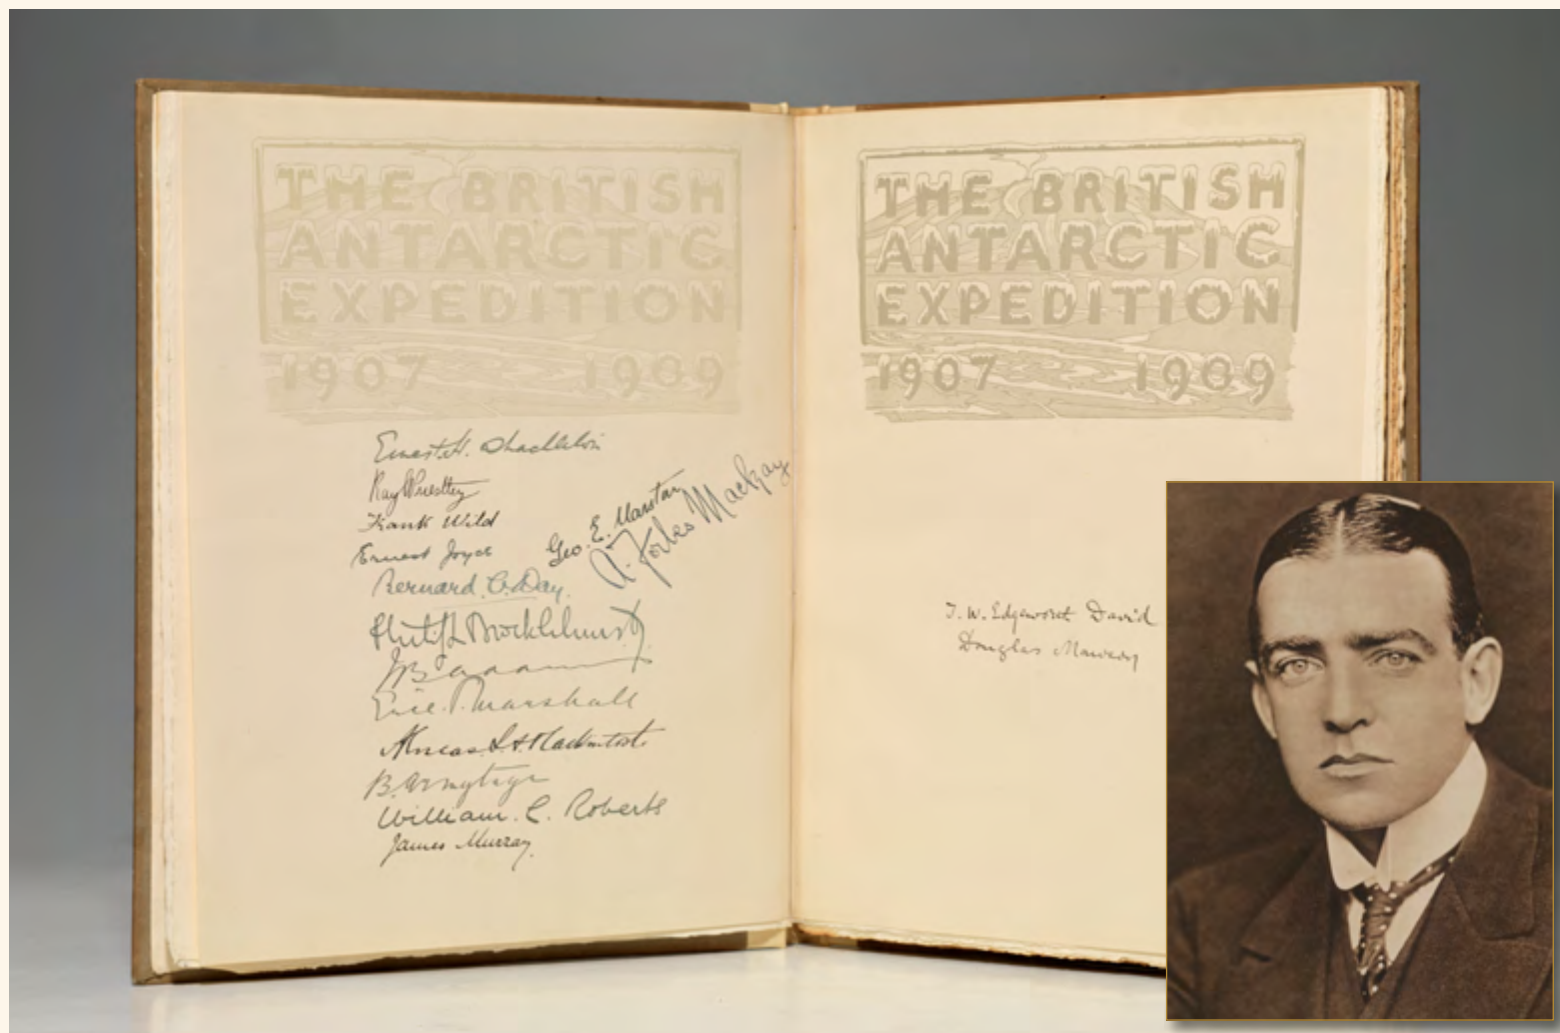 THE BRITISH
ANTARCTIC
EXPEDITION
1907 1909
Ernest H. Shackleton
Ray Priestley
Frank Wild
Ernest Joyce
Bernard C. Day.
Geo. E. Marston
A. Forbes Mackay
Philip L Brocklehurst
Eric S. Marshall
Aeneas L A Mackintosh
B. Armytage
William. C. Roberts
James Murray
THE BRITISH
ANTARCTIC
EXPEDITION
1907 1909
T. W. Edgeworth David
Douglas Mawson